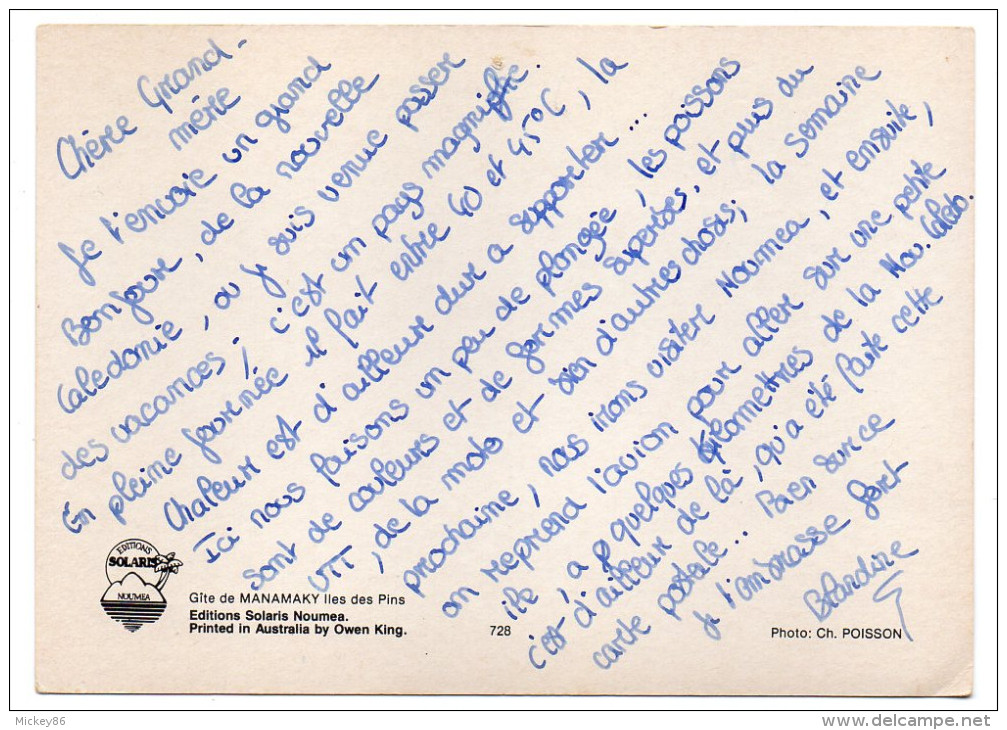 Chérie Grand-
mère
Je t'envoie un grand
Bonjour, de la nouvelle
Caledonie, ou je suis venue passer
des vacances; c'est un pays magnifique.
En pleine journée il fait entre 40 et 45°C, la
Chaleur est d'ailleur dur a supporter...
Ici nous faisons un peu de plongée, les poissons
sont de couleurs et de formes superbes, et puis du
VTT, de la moto et bien d'autres choses; la semaine
prochaine, nous irons visiter Nourmea, et ensuite,
on reprend l'avion pour aller sur une petite
ile, a quelques kilomettres de la Nouv. Caledo.
c'est d'ailleur de là, qu'a été faite cette
carte postale... Bien sur ce
je t'embrasse fort
Blandine
EDITIONS
SOLARIS
NOUMEA
Gîte de MANAMAKY Iles des Pins
Editions Solaris Noumea.
Printed in Australia by Owen King.
728
Photo: Ch. POISSON
Mickey86
www.delcampe.net